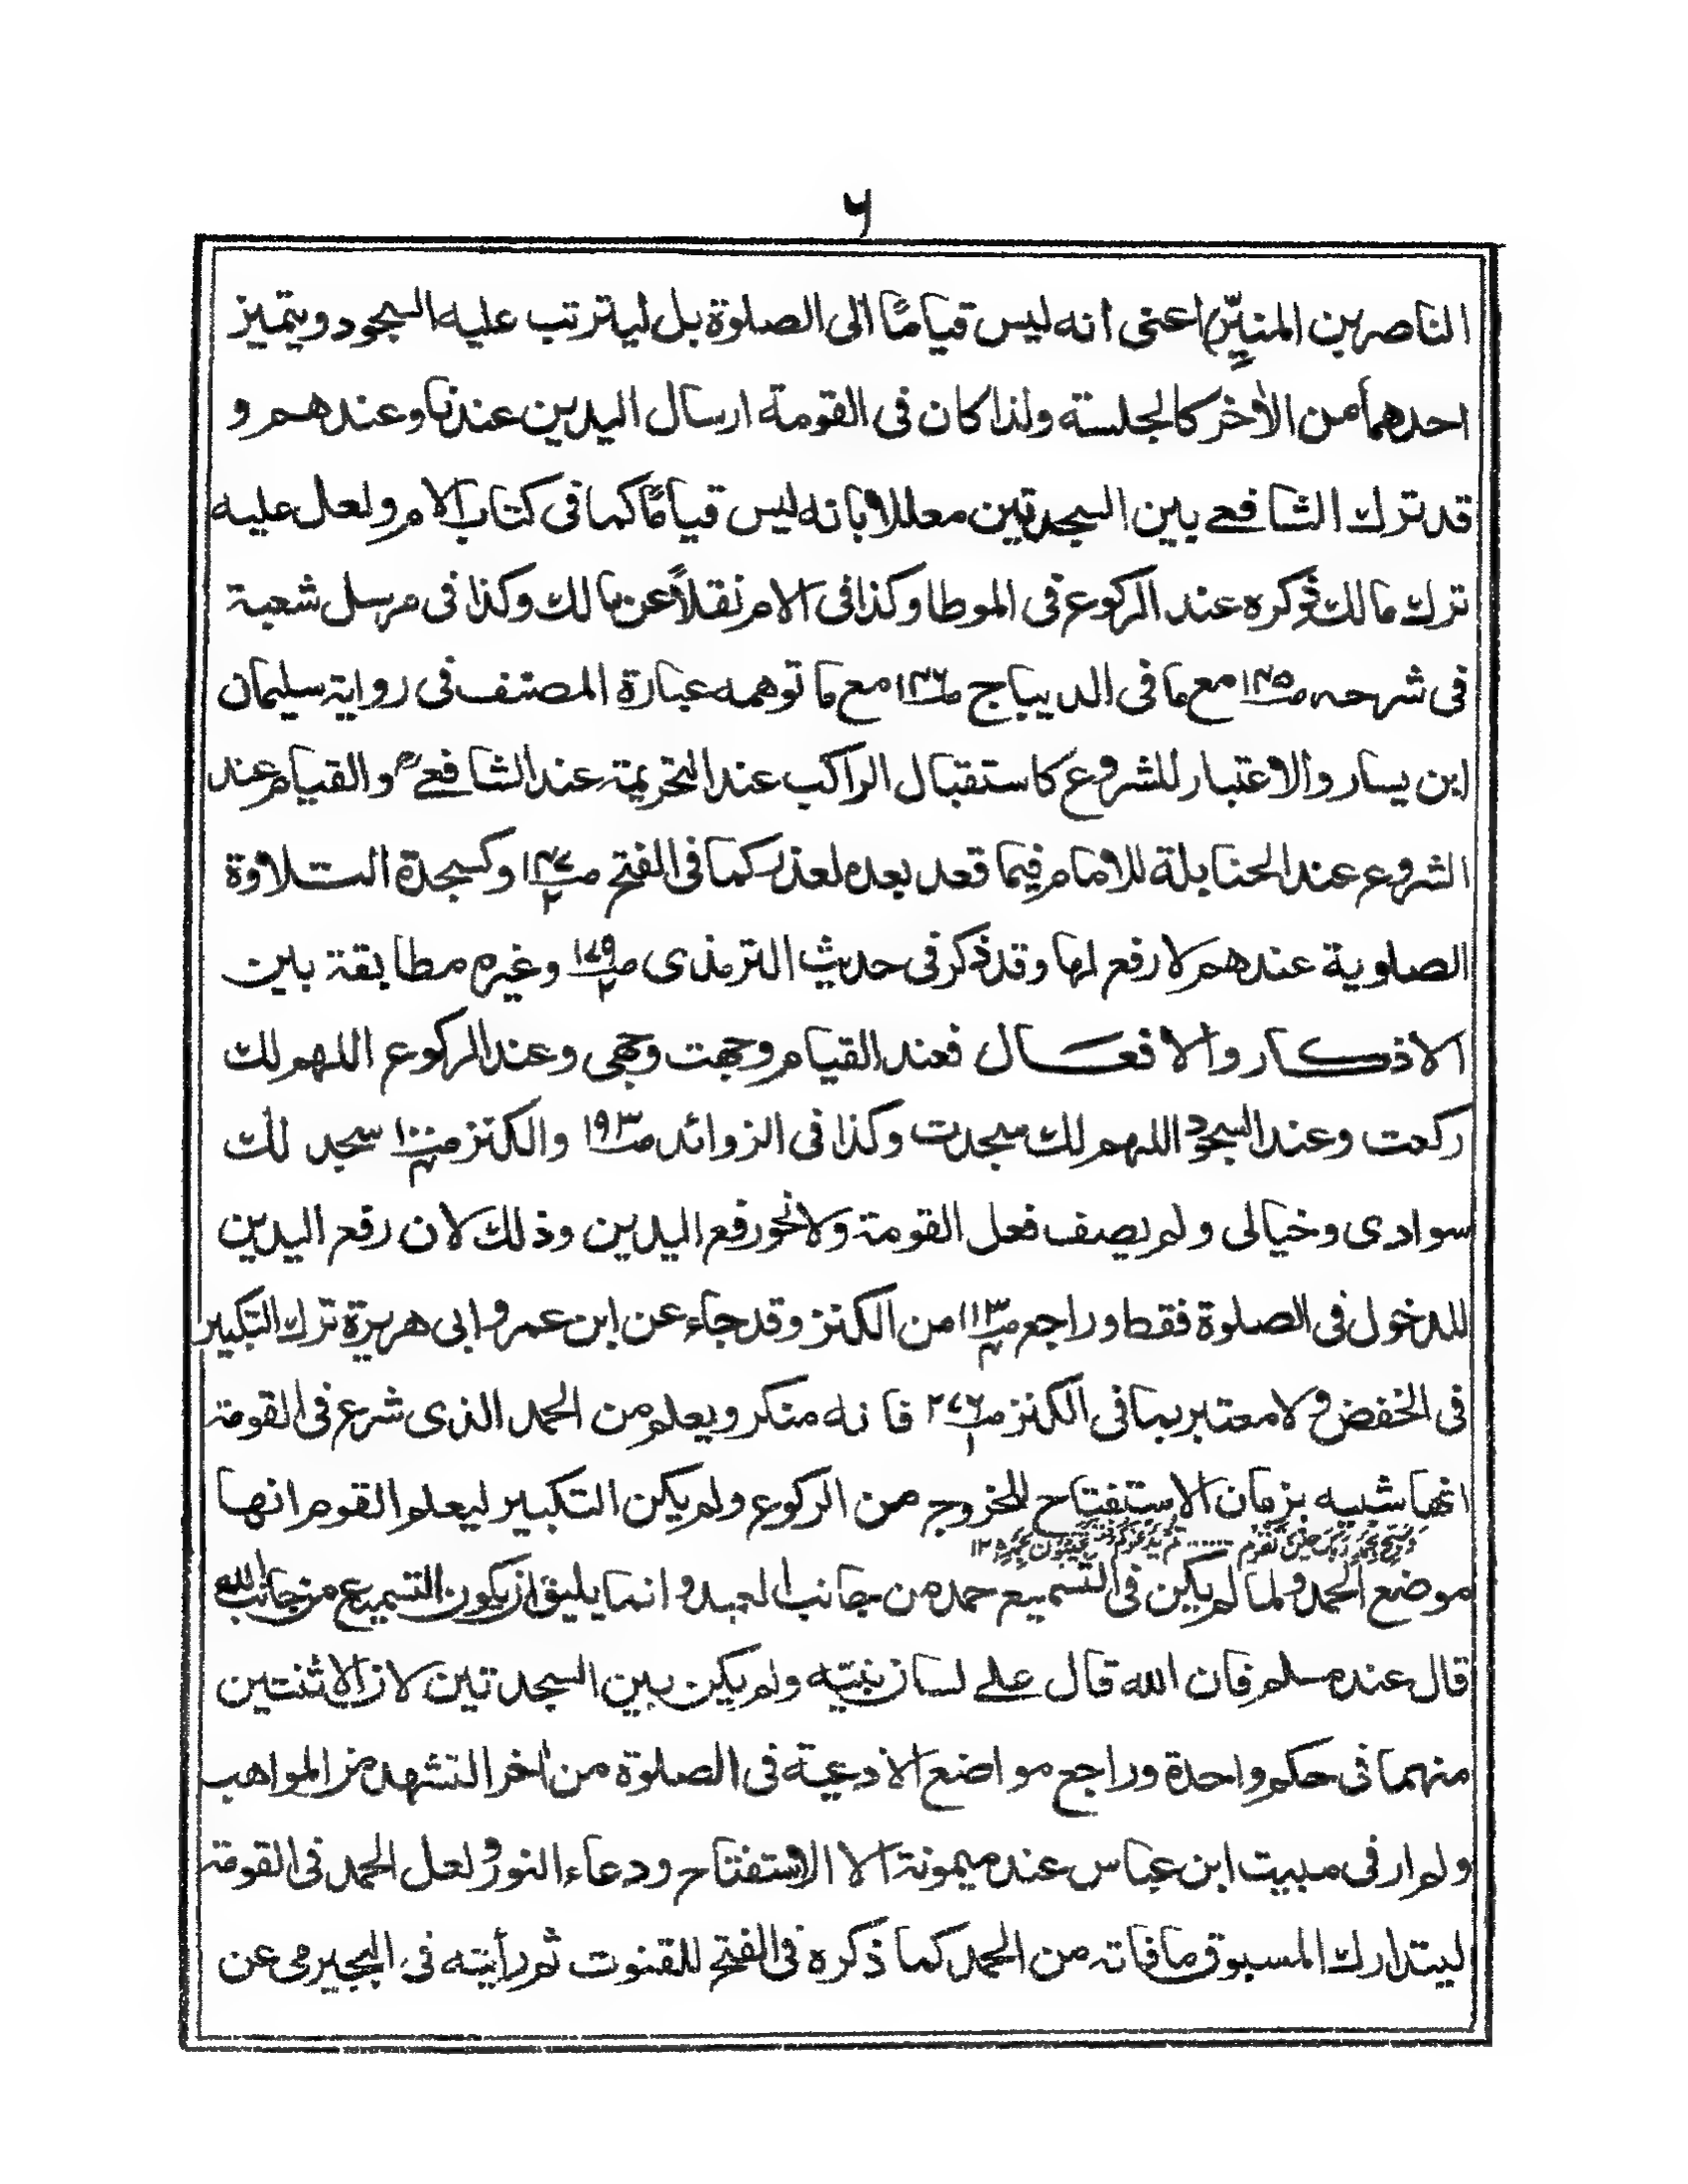 ۶
الناصر بن المنيّر) اعنى انه ليس قيامًا الى الصلوٰة بل ليترتب عليه السجود ويتميز
احدهما من الاٰخر كالجلسة ولذا كان فى القومة ارسال اليدين عندنا وعندهم و
قد ترك الشافعے بين السجدتين معللا بانه ليس قيامًا كما فى كتاب الام ولعل عليه
ترك مالك ذكره عند الركوع فى الموطا وكذا فى الام نقلاً عن مالك وكذا فى مرسل شعبة
فى شرحه ص١٤٥ مع ما فى الديباج ص١٤٦ مع ما توهمه عبارة المصنف فى رواية سليمان
ابن يسار والاعتبار للشروع كاستقبال الراكب عند التحريمة عند الشافعےؒ والقيام عند
الشروع عند الحنابلة للامام فيما قعد بعده لعذر كما فى الفتح ص١٤٧/٢ وكسجدة التلاوة
الصلوية عندهم لا رفع لها وقد ذكر فى حديث الترمذى ص١٧٩/٢ وغيره مطابقة بين
الاذكار والافعال فعند القيام وجهت وجهى وعند الركوع اللهم لك
ركعت وعند السجود اللهم لك سجدت وكذا فى الزوائد ص١٩٣ والكنز ص١٠٠/٤ سجد لك
سوادى وخيالى ولم يصف فعل القومة ولا نحو رفع اليدين وذلك لان رفع اليدين
للدخول فى الصلوة فقط وراجع ص١١٣/٤ من الكنز وقد جاء عن ابن عمر وابى هريرة ترك التكبير
فى الخفض ولا معتبر بما فى الكنز ص٢٧٦/١ فانه منكر ويعلم من الحمد الذى شرع فى القومة
انها شبيه بزمان الاستفتاح للخروج من الركوع ولم يكن التكبير ليعلم القوم انها
موضع الحمد ولما لم يكن فى التسميع حمد من جانب العبد وانما يليق ان يكون التسميع من جانب الله
قال عنده مسلم فان الله قال علے لسان نبيه ولم يكن بين السجدتين لان الاثنتين
منهما فى حكم واحدة وراجع مواضع الادعية فى الصلوة من اٰخر التشهد من المواهب
ولم ار فى مبيت ابن عباس عند ميمونة الا الاستفتاح ودعاء النور ولعل الحمد فى القومة
ليتدارك المسبوق ما فاته من الحمد كما ذكره فى الفتح للقنوت ثم رأيته فى البجيرمى عن